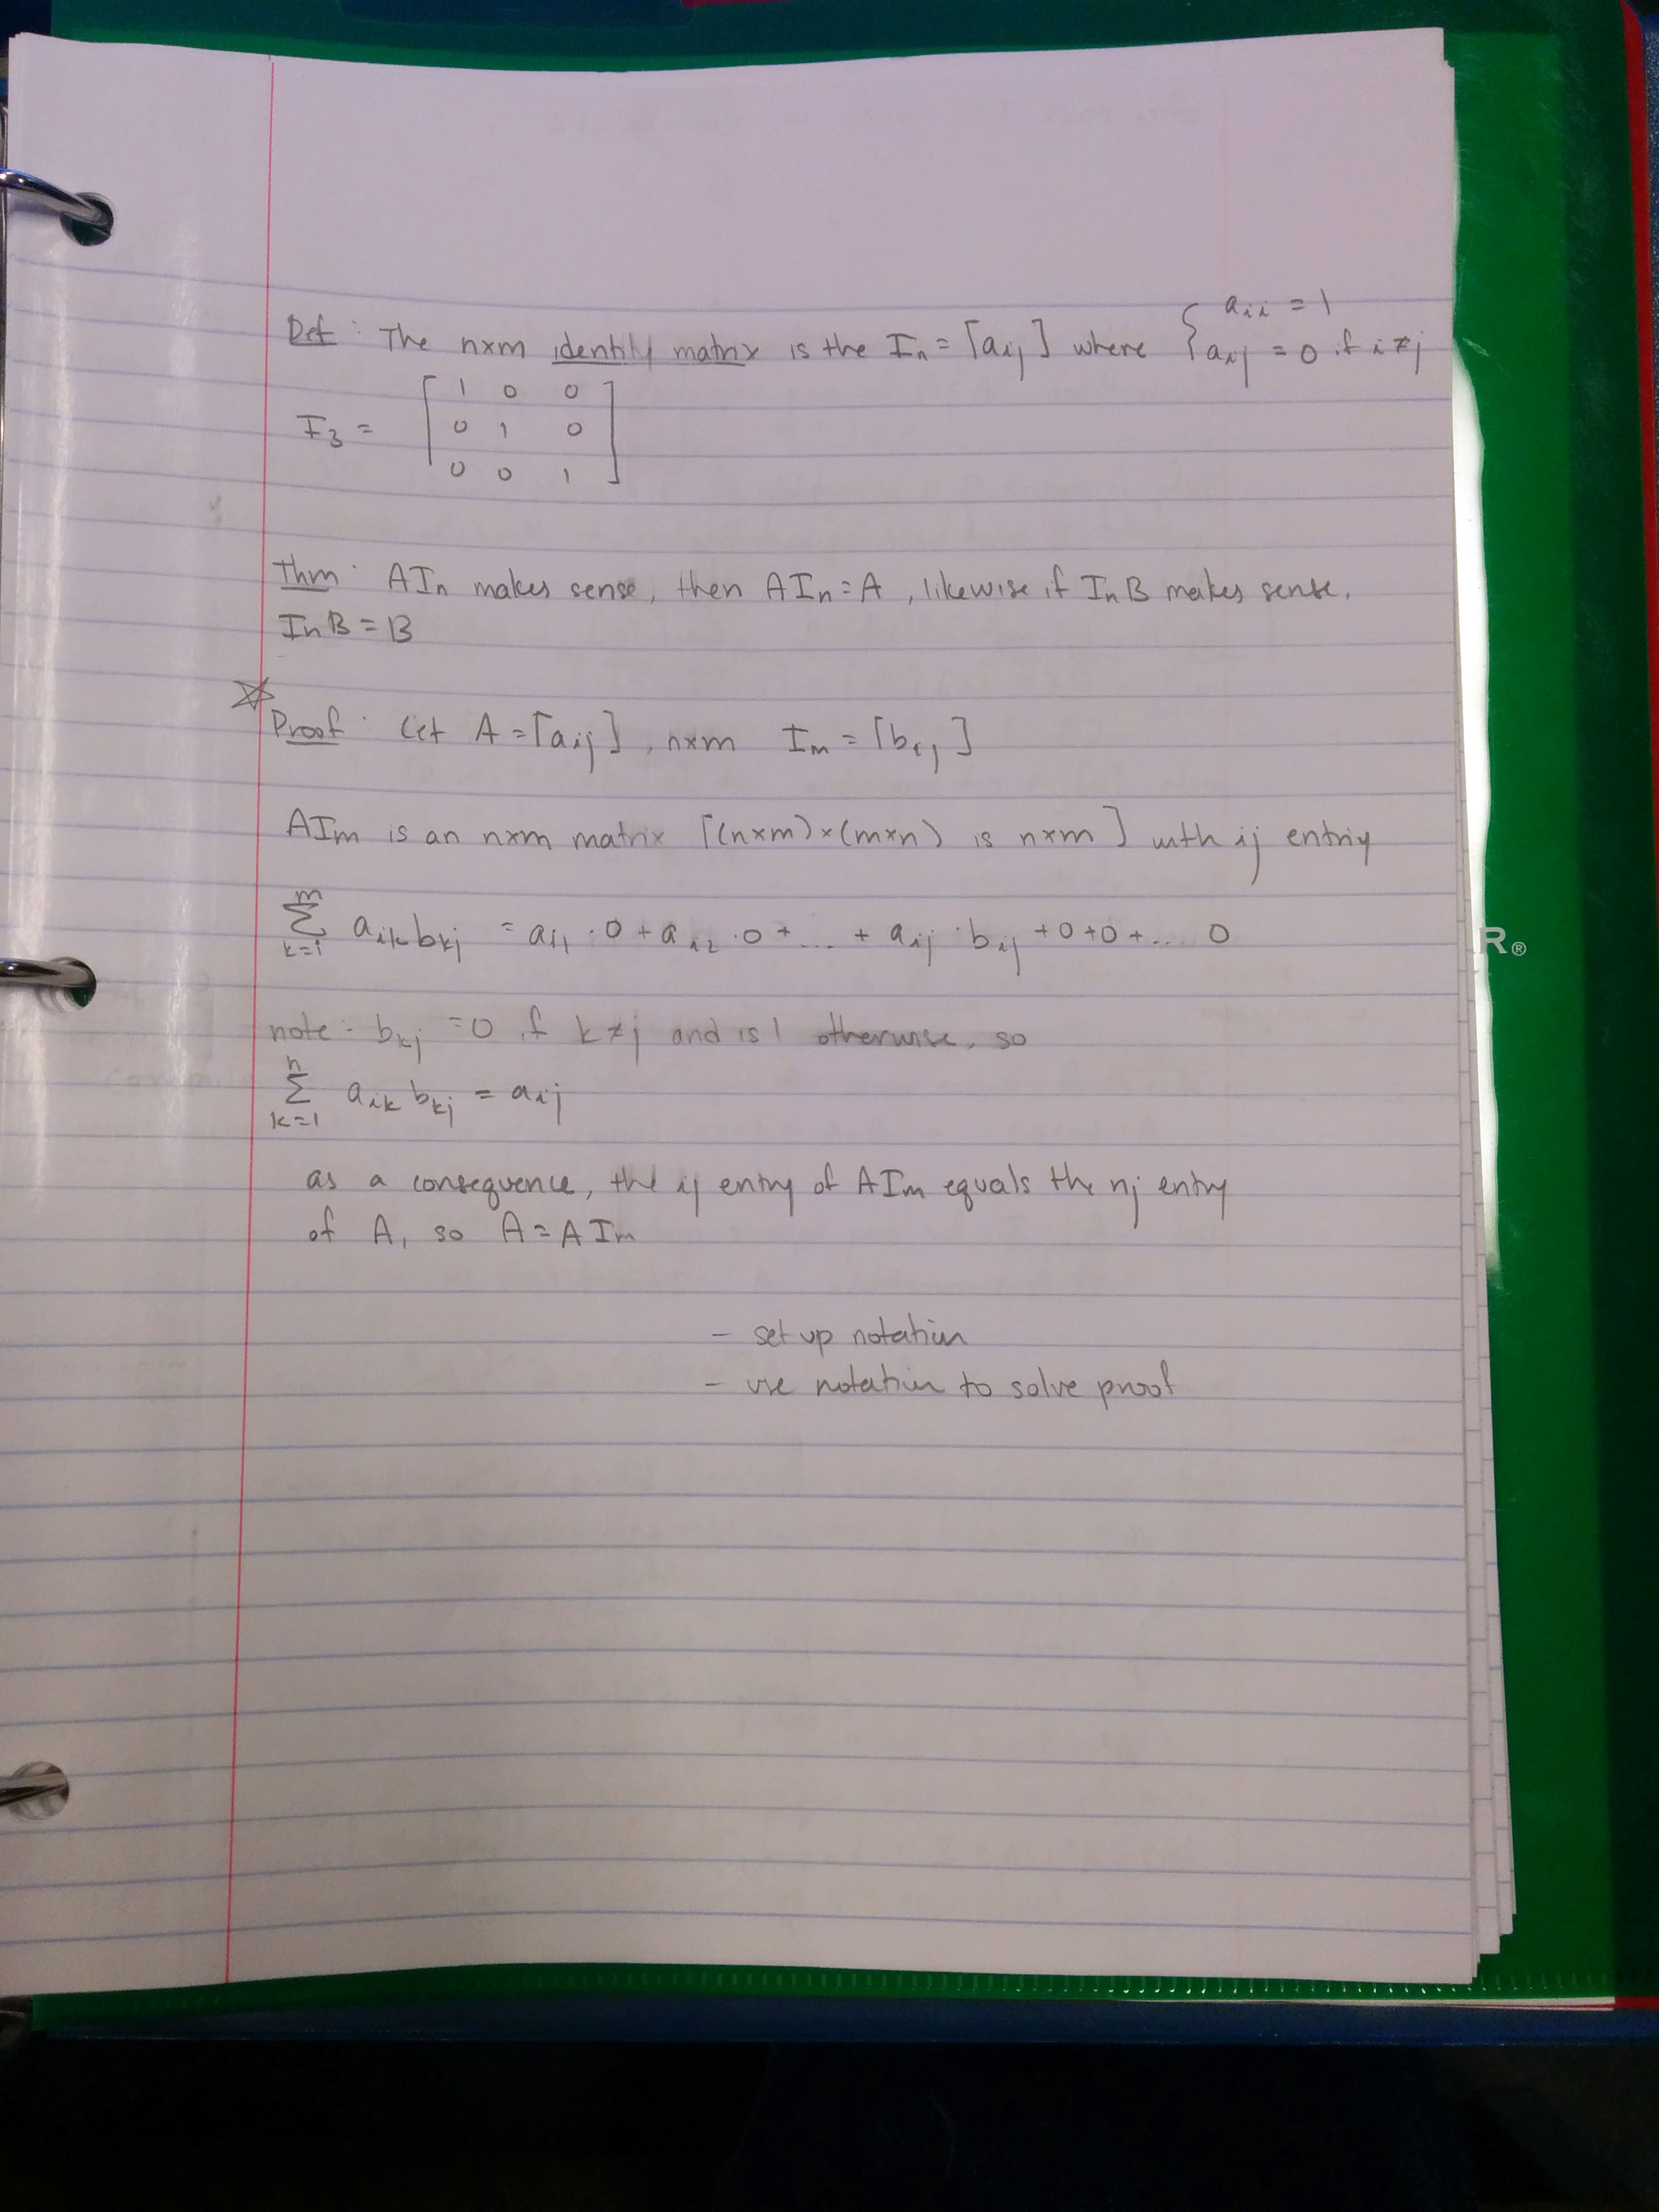 Def: The nxm identity matrix is the In = [aij] where { aii = 1
aij = 0 if i≠j
I3 = [ 1 0 0
0 1 0
0 0 1 ]
Thm: AIn makes sense, then AIn = A, likewise if InB makes sense,
InB = B
☆
Proof: Let A = [aij], nxm Im = [bij]
AIm is an nxm matrix [(nxm)×(mxn) is nxm] with ij entriy
m
Σ aikbkj = ai1·0 + ai2·0 + ... + aij·bij + 0+0+... 0
k=1
note: bkj = 0 if k≠j and is 1 otherwise, so
n
Σ aik bkj = aij
k=1
as a consequence, the ij entry of AIm equals the nj entry
of A, so A = AIm
- set up notation
- use notation to solve proof
R®